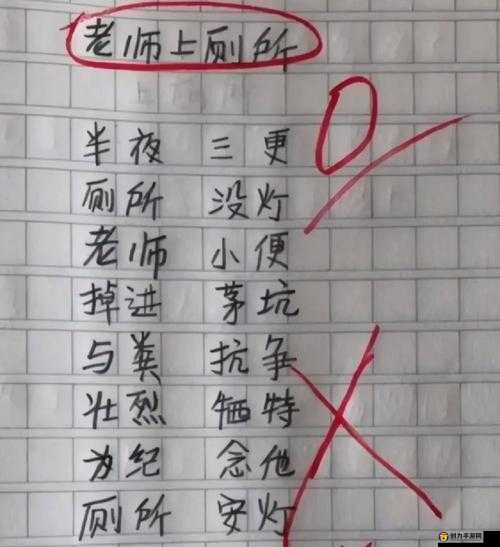 老师上厕所
0
半夜 三更
厕所 没灯
老师 小便
掉进 茅坑
与粪 抗争
壮烈 牺特
为纪 念他
厕所 安灯
创力手游网